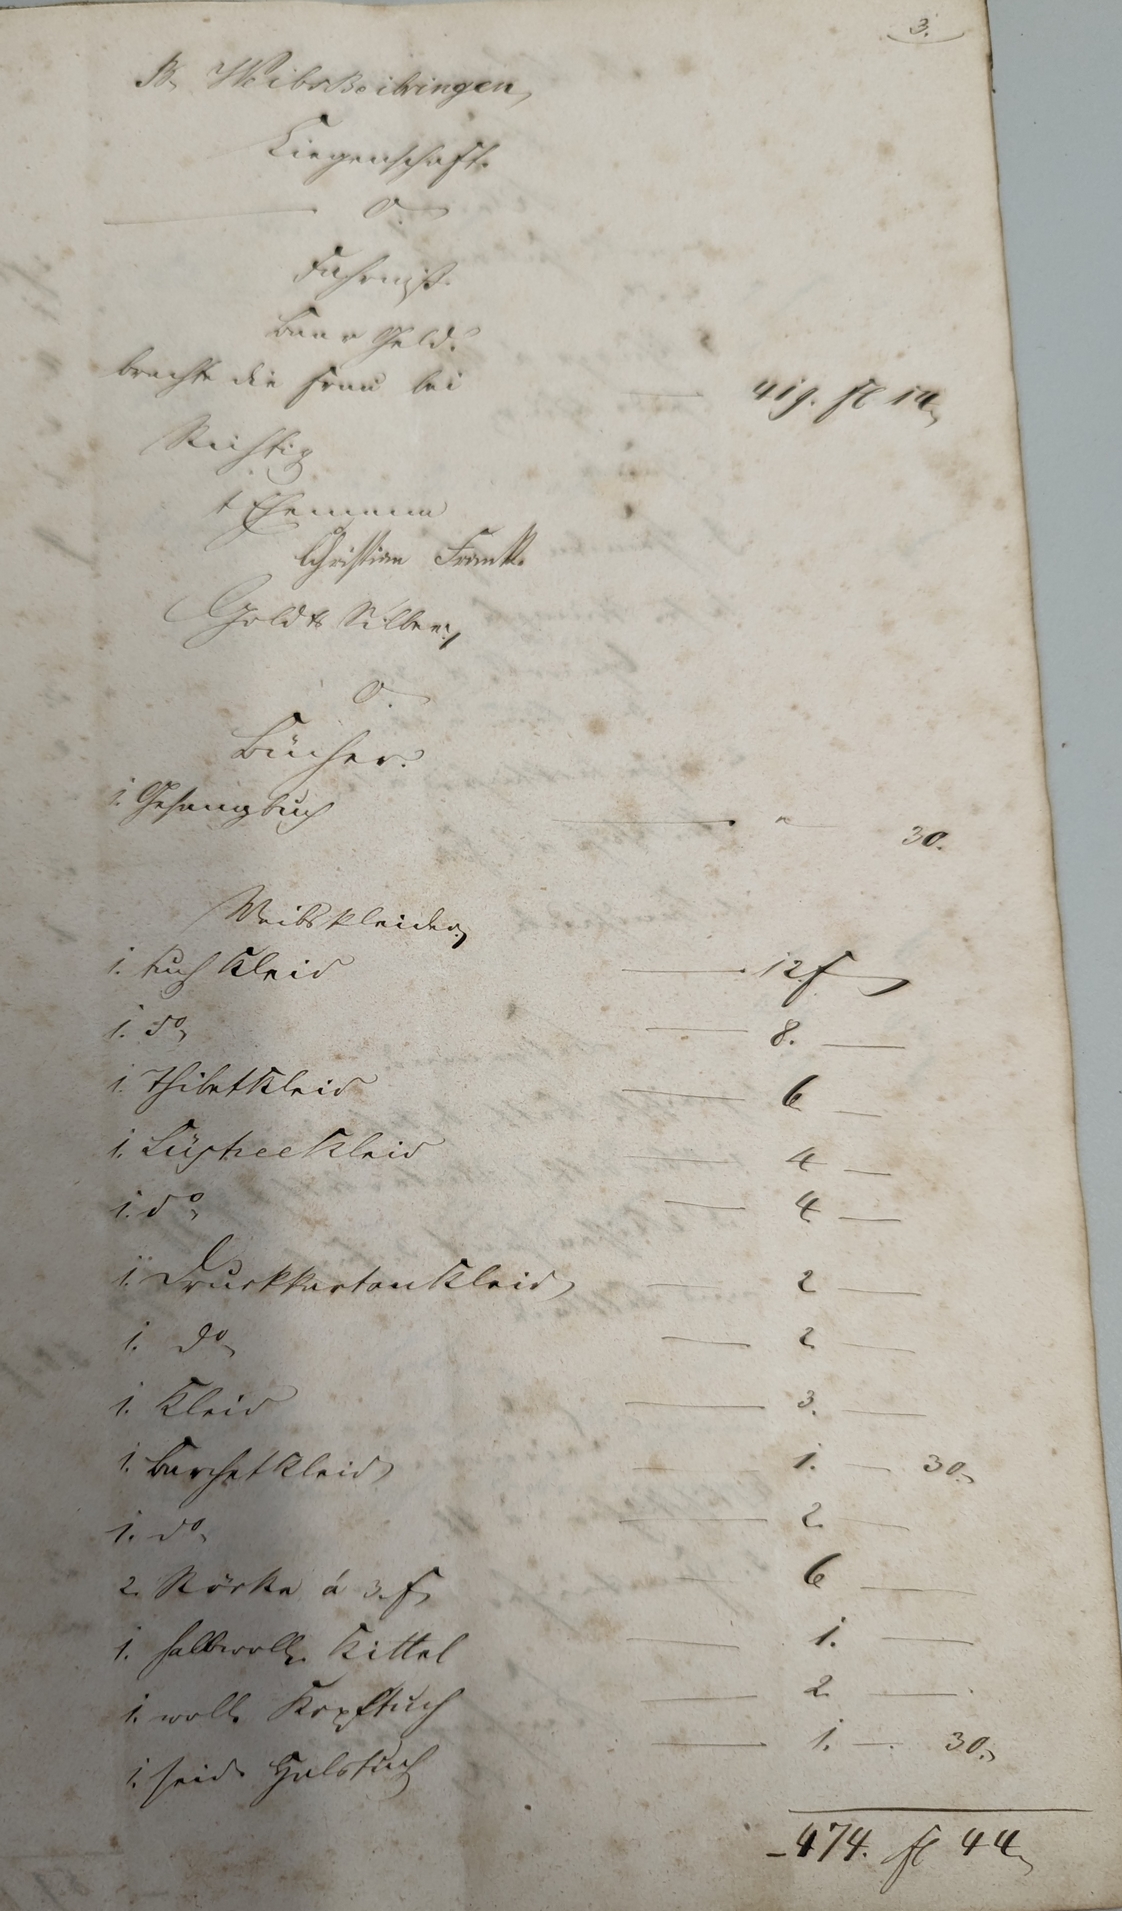 3.
B. WeibsBeibringen,
Liegenschaft.
0.
Fahrniß.
Baar Geld.
brachte die Frau bei — 419. fl 14
Richtig
t. Ehemann
Christian Frank.
Gold & Silber,
0.
Bücher.
1. Gesangbuch — " — 30.
Weibskleider,
1. Tuch Kleid — 12 f
1. do — 8. —
1. Thibet Kleid — 6 —
1. Lüstree Kleid — 4 —
1. do — 4 —
1. Druckkarton Kleid — 2 —
1. do — 2 —
1. Kleid — 3. —
1. Barchet Kleid — 1. — 30.
1. do — 2 —
2 Röcke á 3. f — 6 —
1. halbwoll. Kittel — 1. —
1. woll. Kopftuch — 2 —
1. seid. Halstuch — 1. — 30.
474. fl 44